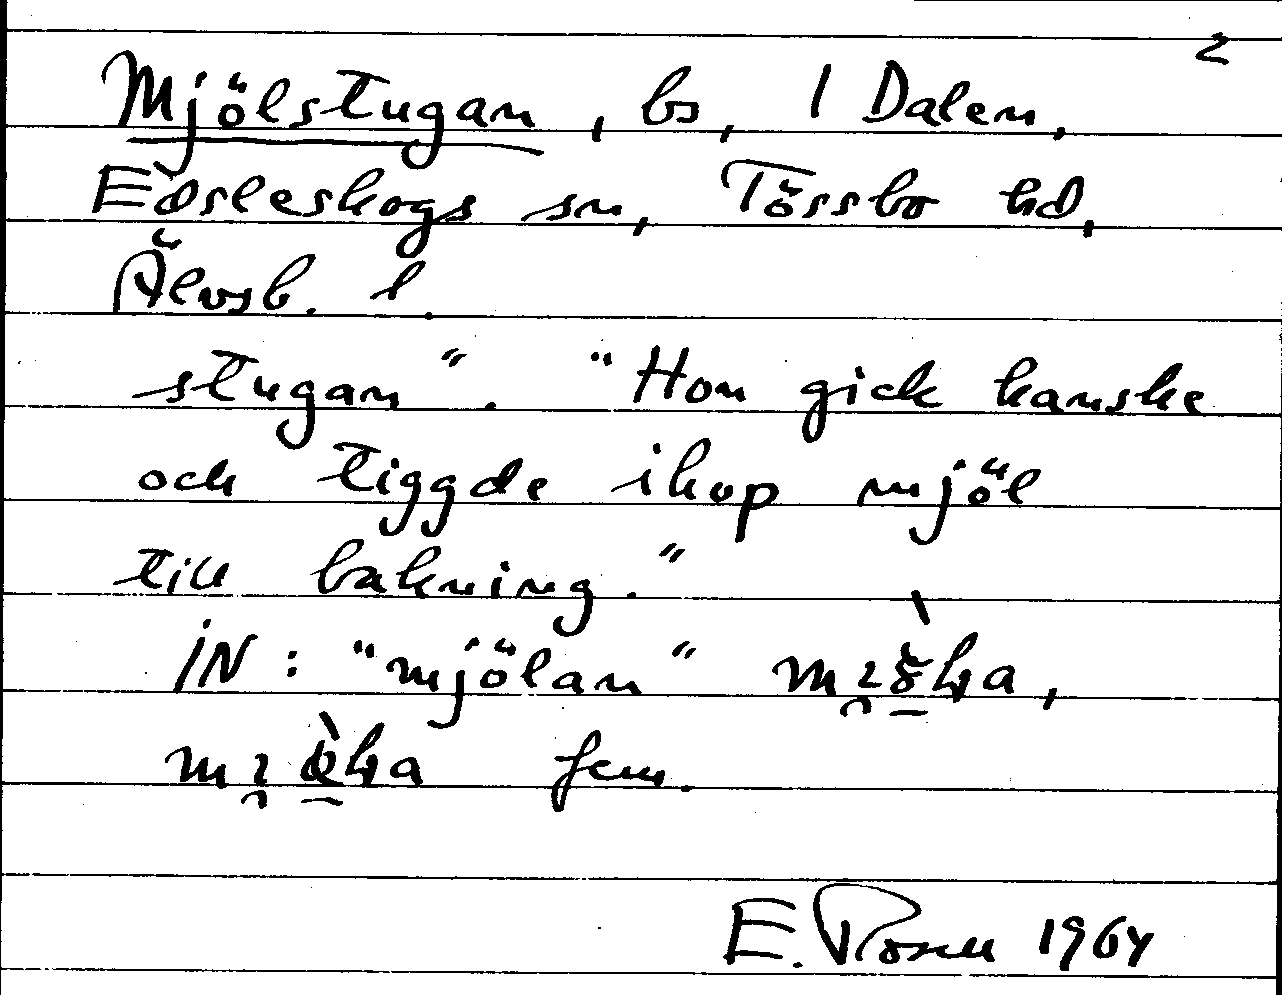 2
Mjölstugan, bs, 1 Dalen,
Edsleskogs sn, Tössbo hd,
Älvsb. l.
stugan". "Hon gick kanske
och tiggde ihop mjöl
till bakning."
IN: "mjölan"
fem.
E. Rosen 1964